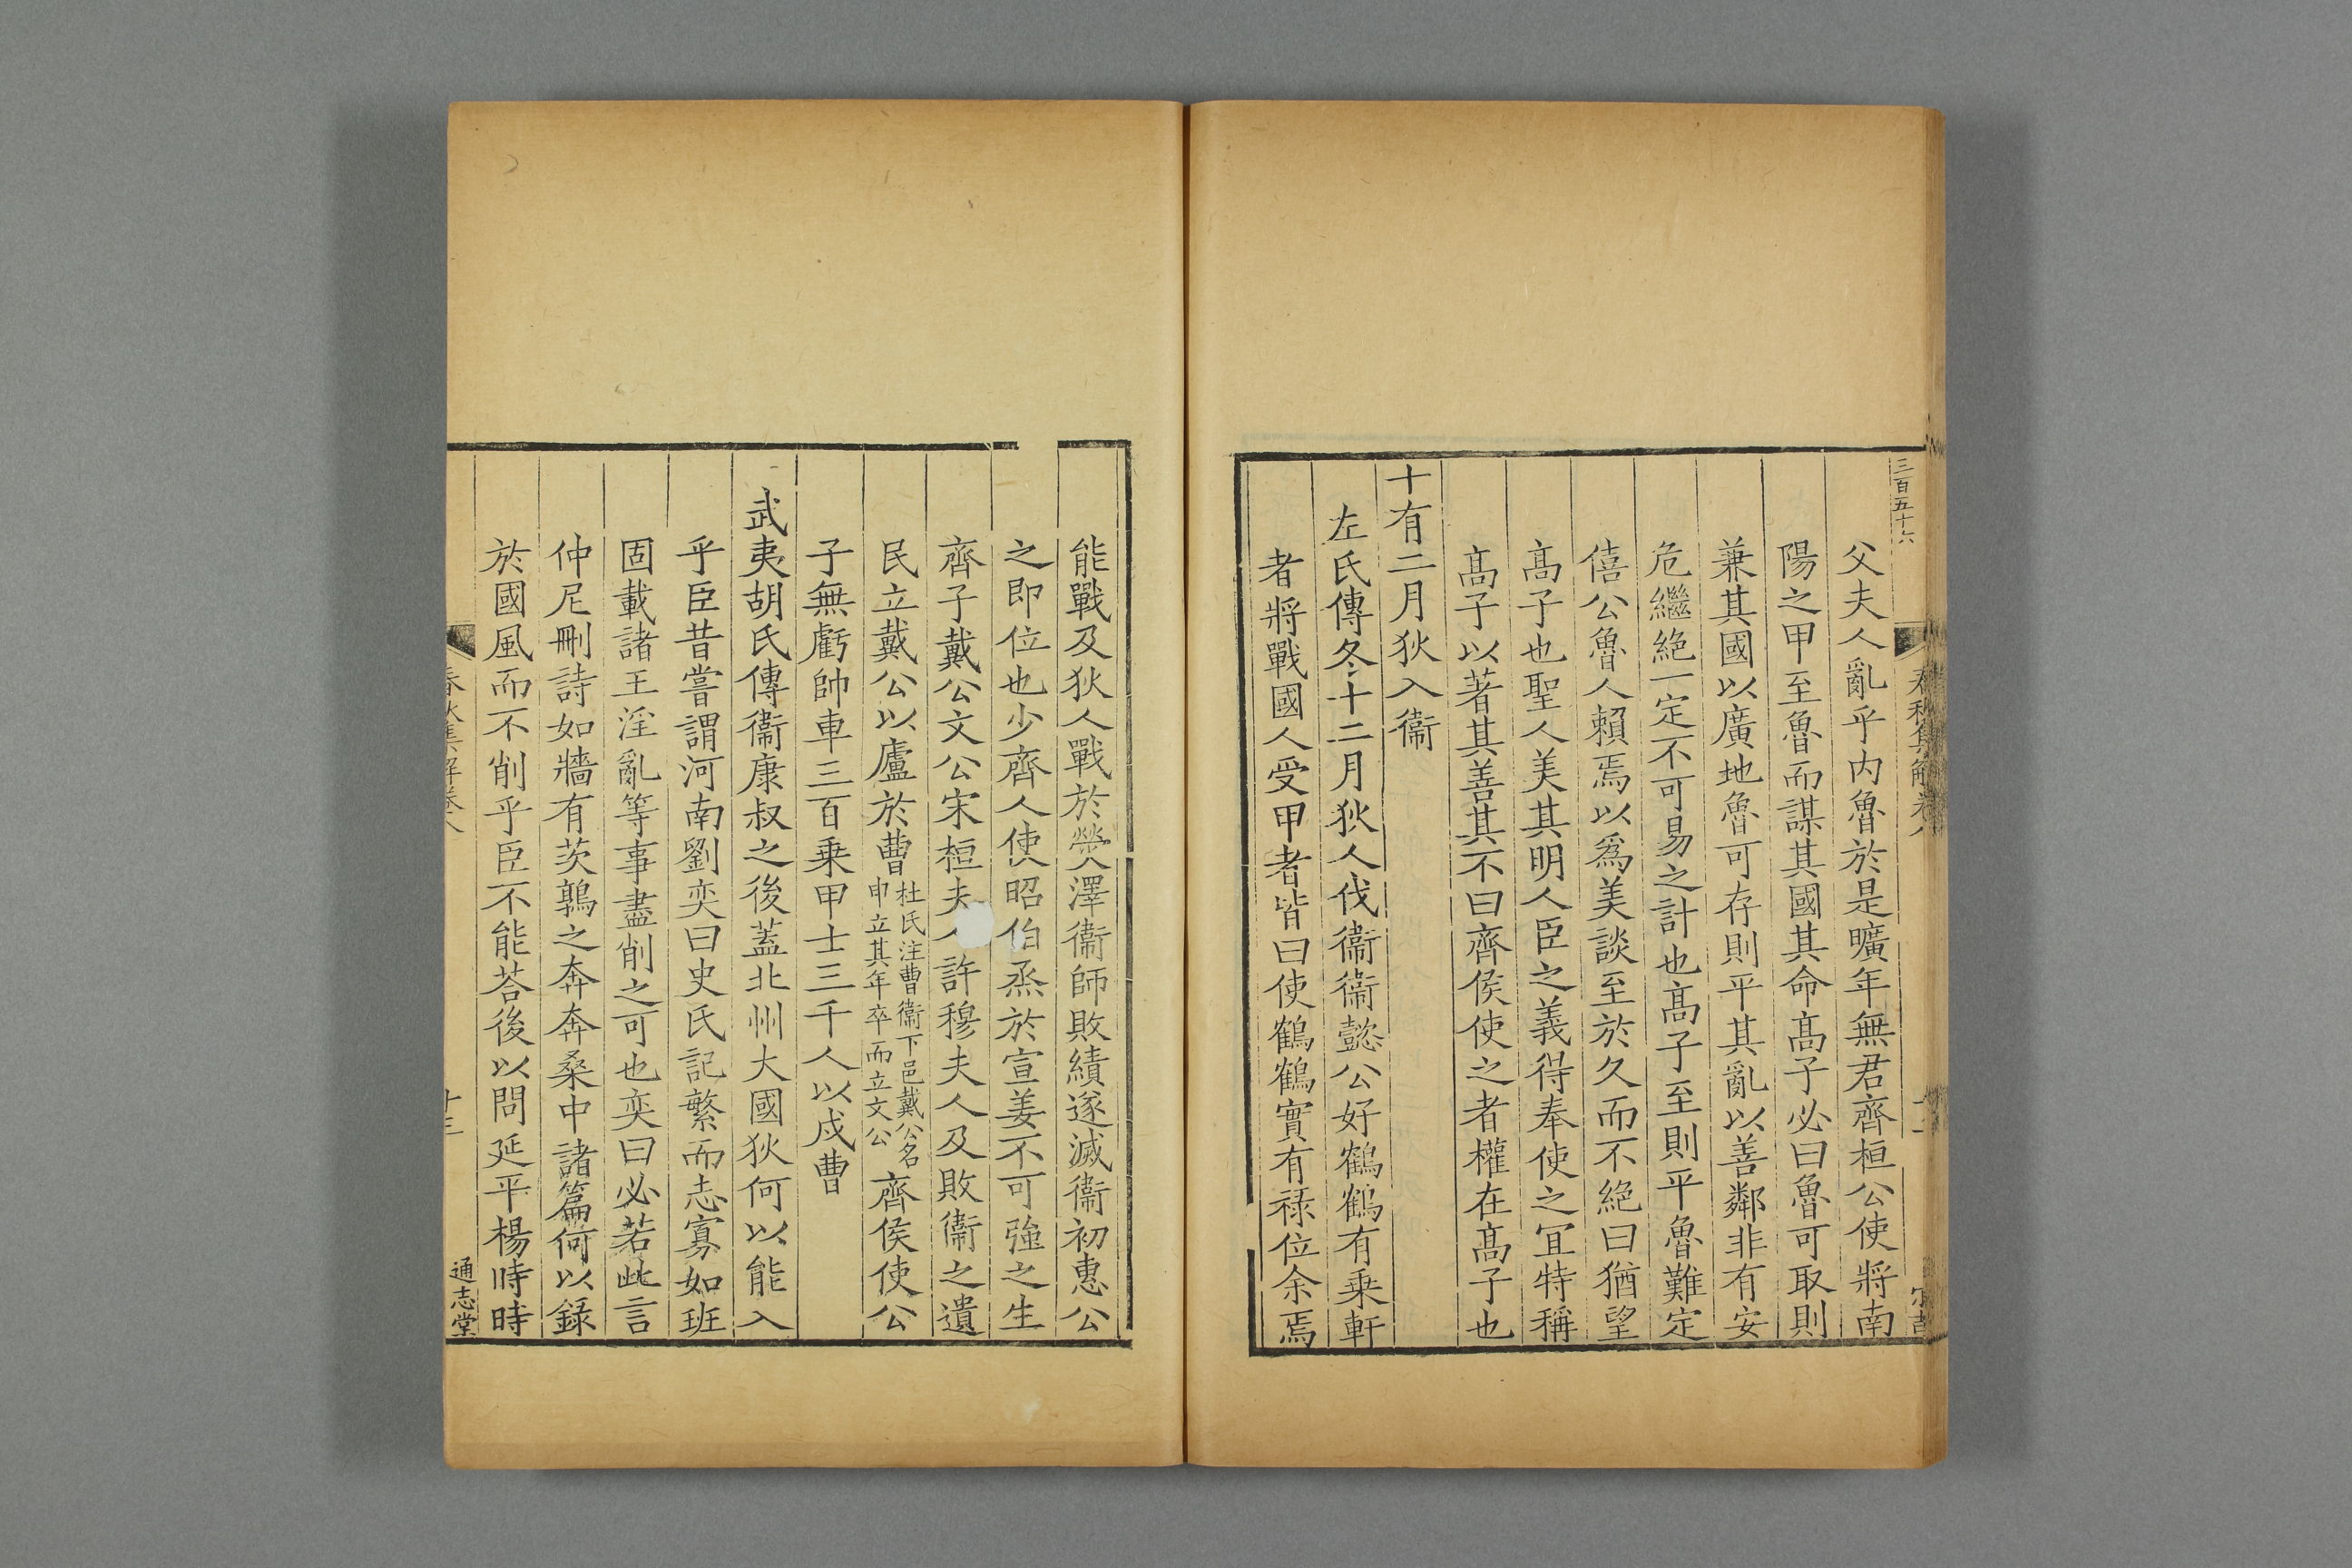 三百五十六
春秋集解卷八
父夫人亂乎内魯於是曠年無君齊桓公使將南
陽之甲至魯而謀其國其命髙子必曰魯可取則
兼其國以廣地魯可存則平其亂以善鄰非有安
危繼絶一定不可易之計也髙子至則平魯難定
僖公魯人賴焉以爲美談至於久而不絶曰猶望
髙子也聖人美其明人臣之義得奉使之冝特稱
髙子以著其善其不曰齊侯使之者權在髙子也
十有二月狄入衞
左氏傳冬十二月狄人伐衞衞懿公好鶴鶴有乗軒
者將戰國人受甲者皆曰使鶴鶴實有禄位余焉
能戰及狄人戰於熒澤衞師敗績遂滅衞初惠公
之即位也少齊人使昭伯烝於宣姜不可強之生
齊子戴公文公宋桓夫人許穆夫人及敗衞之遺
民立戴公以廬於曹杜氏注曹衞下邑戴公名申立其年卒而立文公齊侯使公
子無虧帥車三百乗甲士三千人以戍曹
武夷胡氏傳衞康叔之後蓋北州大國狄何以能入
乎臣昔嘗謂河南劉奕曰史氏記繁而志寡如班
固載諸王淫亂等事盡削之可也奕曰必若此言
仲尼刪詩如牆有茨鶉之奔奔桑中諸篇何以録
於國風而不削乎臣不能荅後以問延平楊時時
春秋集解卷八
十三
通志堂